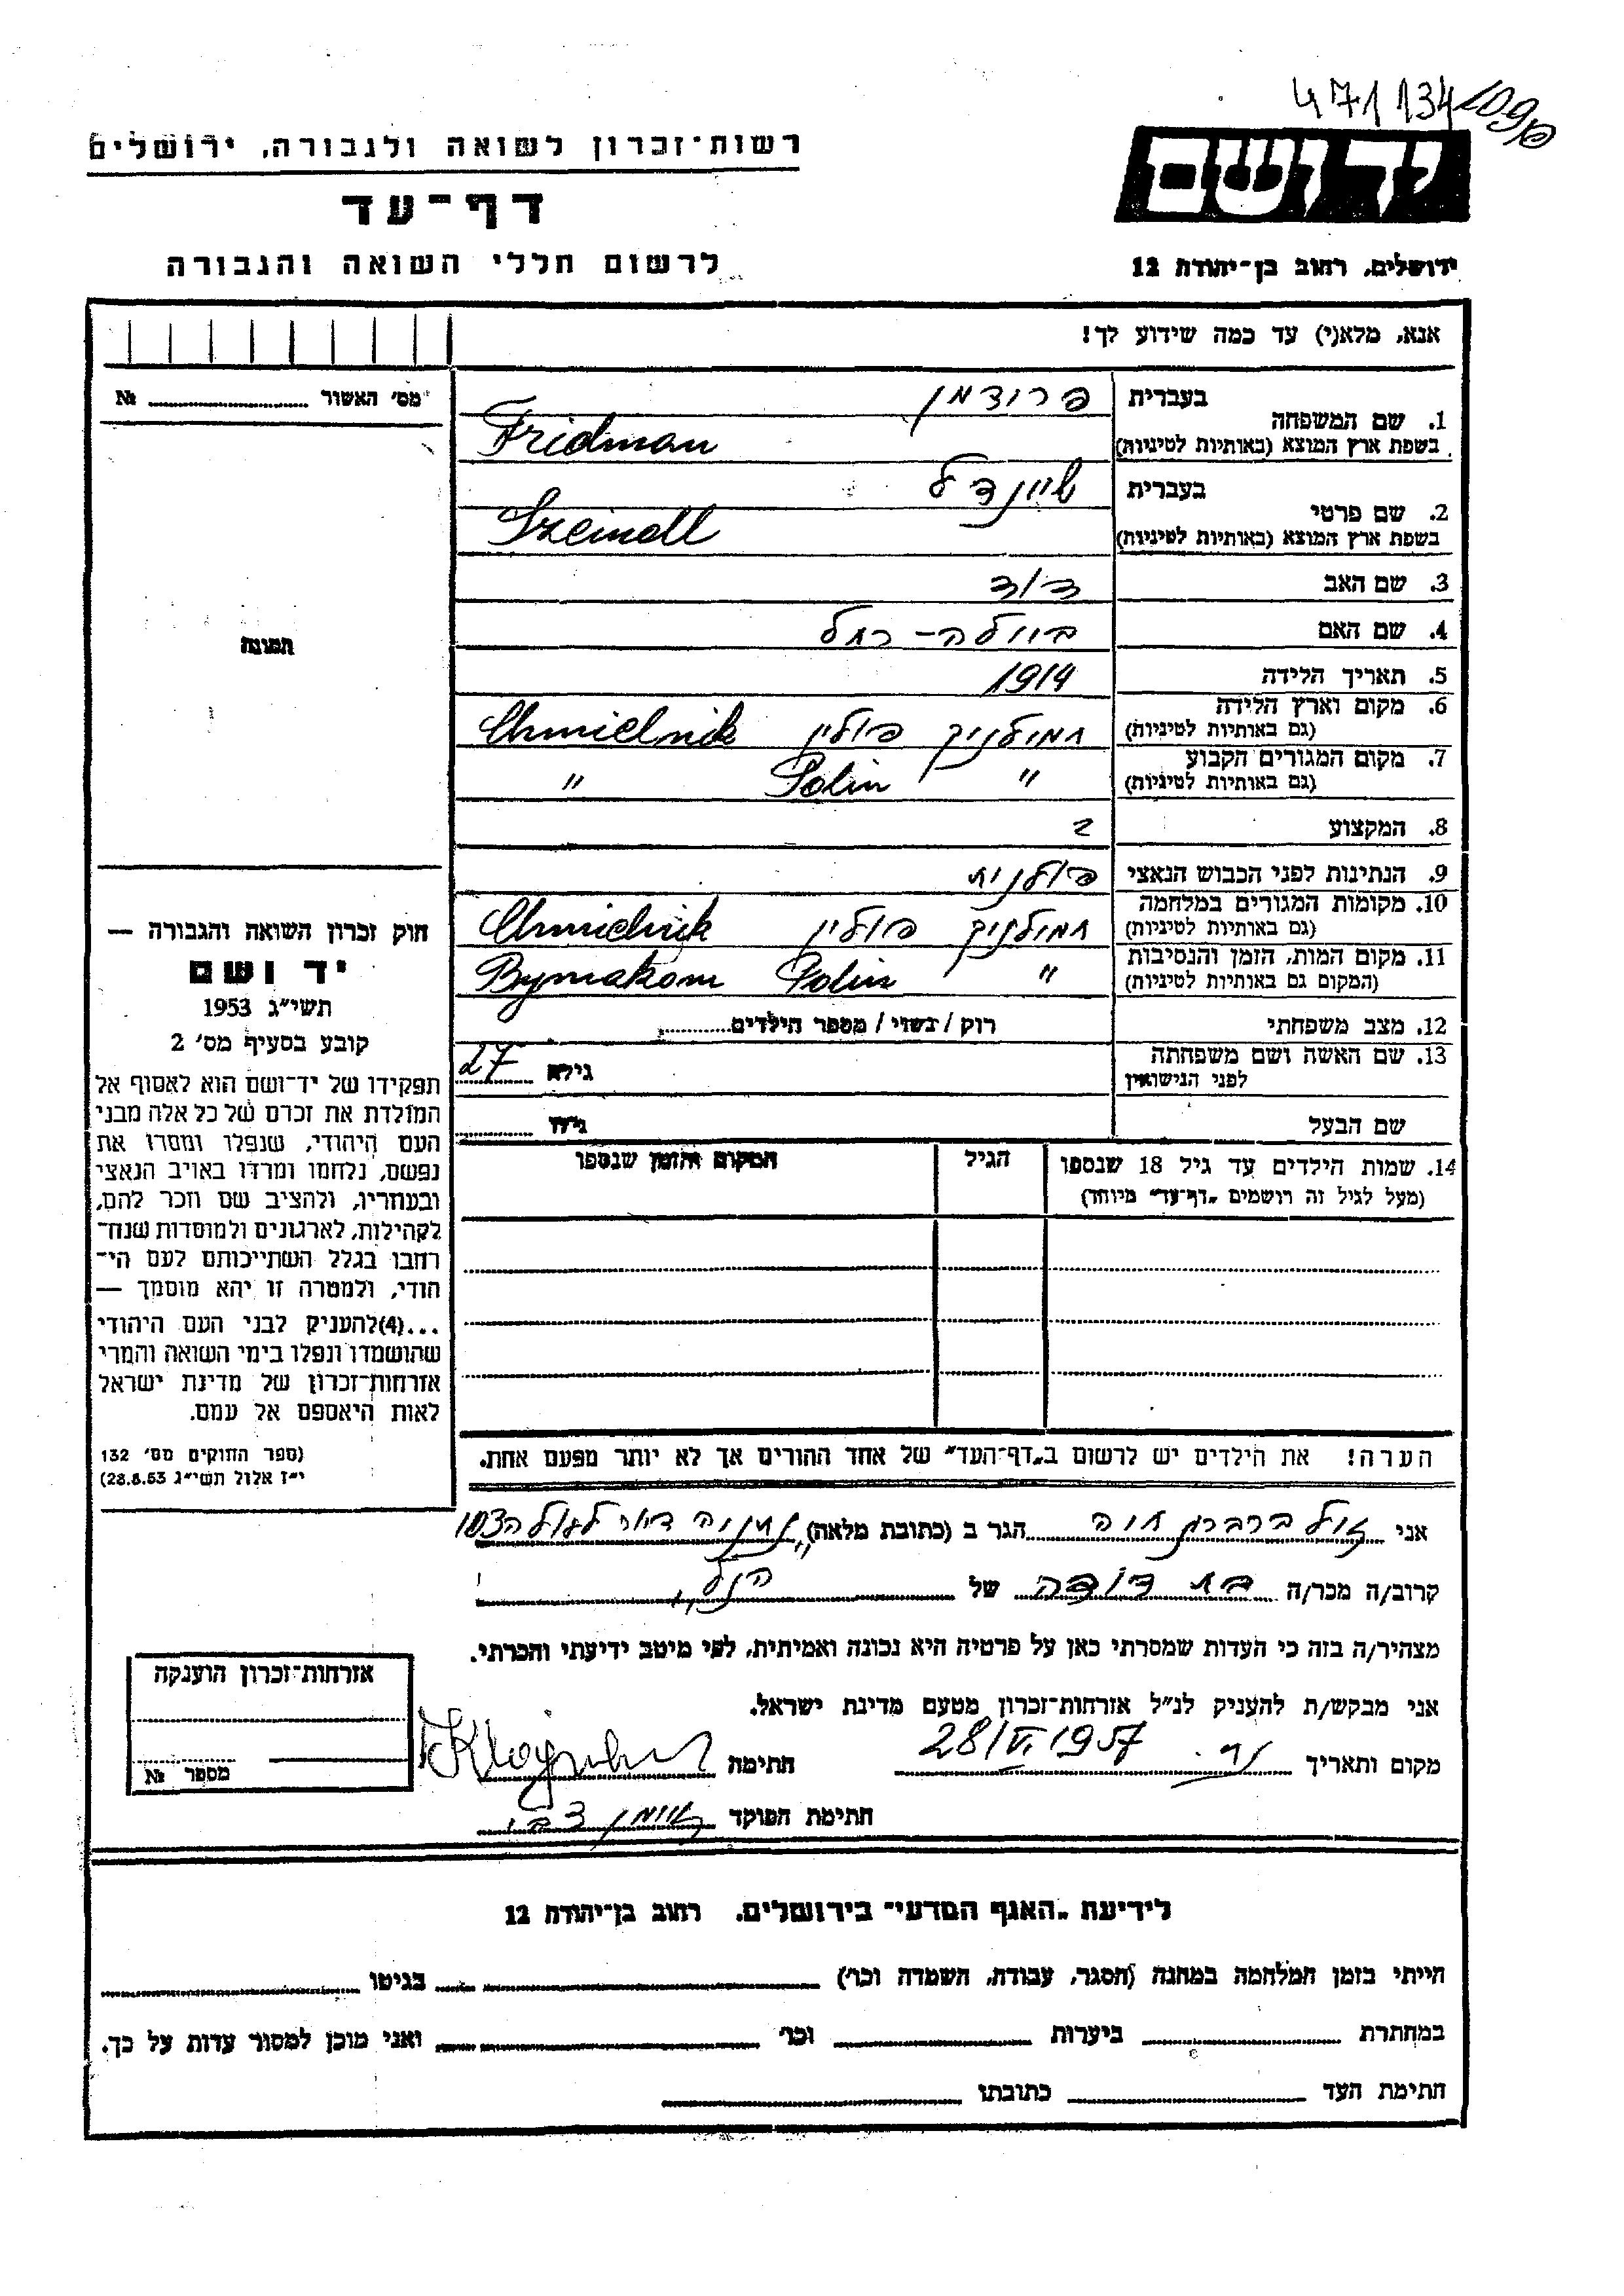 471134
רשות־זכרון לשואה ולגבורה, ירושלים
יד ושם
דף־עד
לרשום חללי השואה והגבורה
ירושלים, רחוב בן־יהודה 12
אנא, מלא(י) עד כמה שידוע לך!
מס׳ האשור №
1. שם המשפחה בעברית פרידמן
בשפת ארץ המוצא (באותיות לטיניות) Fridman
2. שם פרטי בעברית שיינדל
בשפת ארץ המוצא (באותיות לטיניות) Szeindl
3. שם האב דוד
4. שם האם ביילה - רחל
5. תאריך הלידה 1914
6. מקום וארץ הלידה (גם באותיות לטיניות) חמילניק פולין Chmielnik
7. מקום המגורים הקבוע (גם באותיות לטיניות) " Polin "
8. המקצוע
9. הנתינות לפני הכבוש הנאצי פולנית
10. מקומות המגורים במלחמה (גם באותיות לטיניות) חמילניק פולין Chmielnik
11. מקום המות, הזמן והנסיבות (המקום גם באותיות לטיניות) " Polin Bymakom
12. מצב משפחתי רוק / נשוי / מספר הילדים
13. שם האשה ושם משפחתה לפני הנישואין גילה 27
שם הבעל גילו
14. שמות הילדים עד גיל 18 שנספו
(מעל לגיל זה רושמים „דף־עד״ מיוחד)
הגיל
המקום והזמן שנספו
תמונה
חוק זכרון השואה והגבורה —
יד ושם
תשי״ג 1953
קובע בסעיף מס׳ 2
תפקידו של יד־ושם הוא לאסוף אל
המולדת את זכרם של כל אלה מבני
העם היהודי, שנפלו ומסרו את
נפשם, נלחמו ומרדו באויב הנאצי
ובעוזריו, ולהציב שם וזכר להם,
לקהילות, לארגונים ולמוסדות שנח־
רבו בגלל השתייכותם לעם הי־
הודי, ולמטרה זו יהא מוסמך —
...(4) להעניק לבני העם היהודי
שהושמדו ונפלו בימי השואה והמרי
אזרחות־זכרון של מדינת ישראל
לאות היאספם אל עמם.
(ספר החוקים מס׳ 132
י״ז אלול תשי״ג 28.8.53)
הערה! את הילדים יש לרשום ב„דף־העד״ של אחד ההורים אך לא יותר מפעם אחת.
אני חוה הגר ב (כתובת מלאה) נתניה
קרוב/ה מכר/ה בת דודה של הנ״ל
מצהיר/ה בזה כי העדות שמסרתי כאן על פרטיה היא נכונה ואמיתית, לפי מיטב ידיעתי והכרתי.
אני מבקש/ת להעניק לנ״ל אזרחות־זכרון מטעם מדינת ישראל.
מקום ותאריך 28/VI.1957 חתימה
חתימת הפוקד
אזרחות־זכרון הוענקה
מספר №
לידיעת „האגף המדעי״ בירושלים, רחוב בן־יהודה 12
הייתי בזמן המלחמה במחנה (הסגר, עבודה, השמדה וכו׳) בגיטו
במחתרת ביערות וכו׳ ואני מוכן למסור עדות על כך.
חתימת העד כתובתו